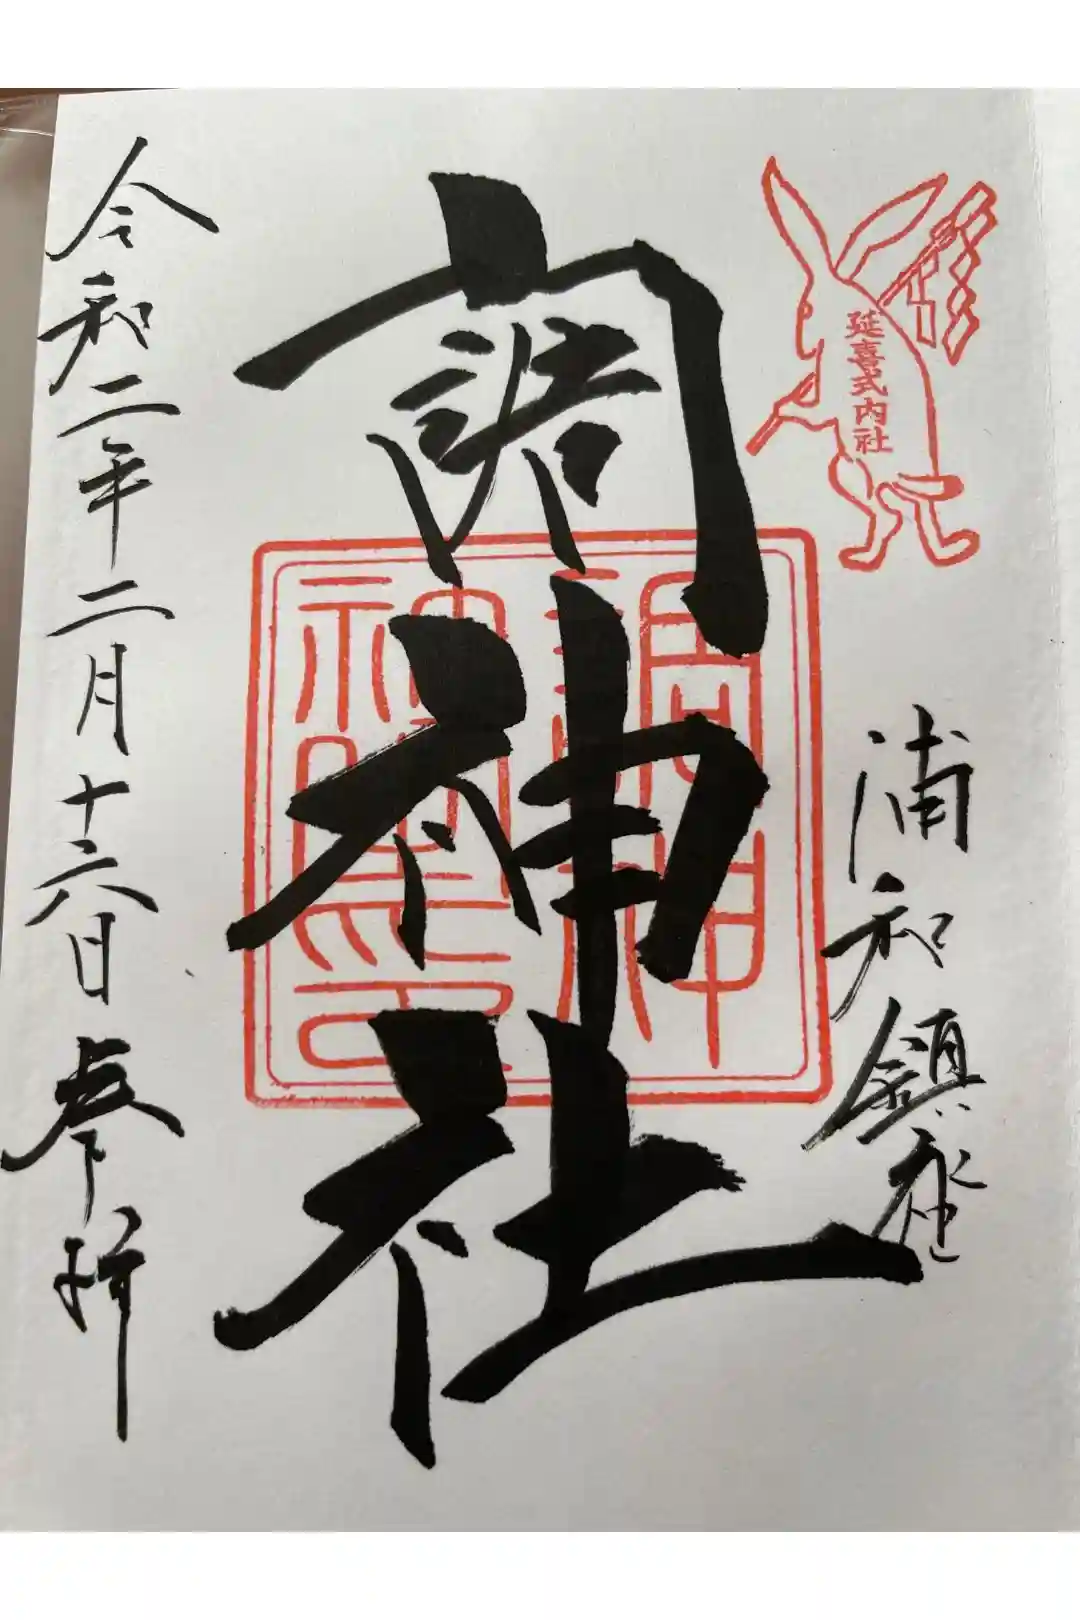 延喜式内社
浦和鎮座
調神社
調神
社之印
令和二年二月十六日参拝